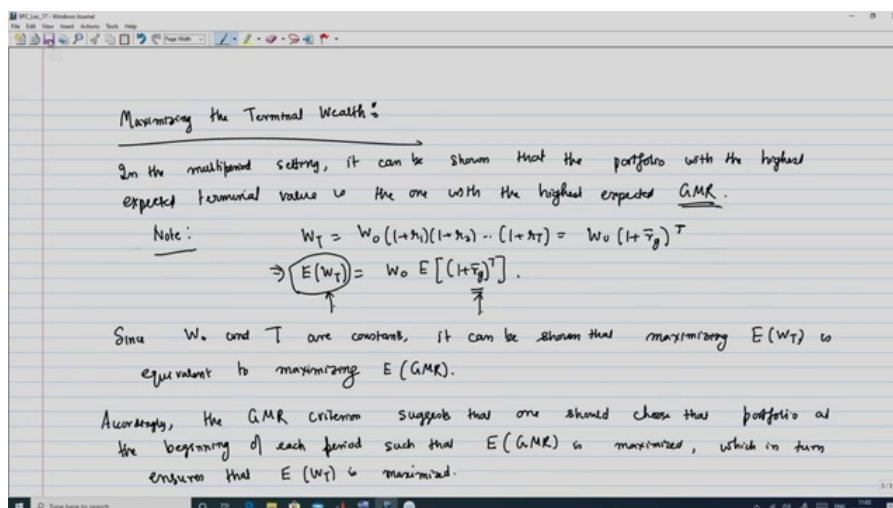 SPC_Lec_17 - Windows Journal
File Edit View Insert Actions Tools Help
Page Width
Maximizing the Terminal Wealth:
In the multiperiod setting, it can be shown that the portfolio with the highest
expected terminal value is the one with the highest expected GMR.
Note: W_T = W_0 (1+r_1)(1+r_2) ... (1+r_T) = W_0 (1+r̄_g)^T
⇒ E(W_T) = W_0 E[(1+r̄_g)^T].
Since W_0 and T are constant, it can be shown that maximizing E(W_T) is
equivalent to maximizing E(GMR).
Accordingly, the GMR criterion suggests that one should choose that portfolio at
the beginning of each period such that E(GMR) is maximized, which in turn
ensures that E(W_T) is maximized.
3/3
Type here to search
ENG 11:03